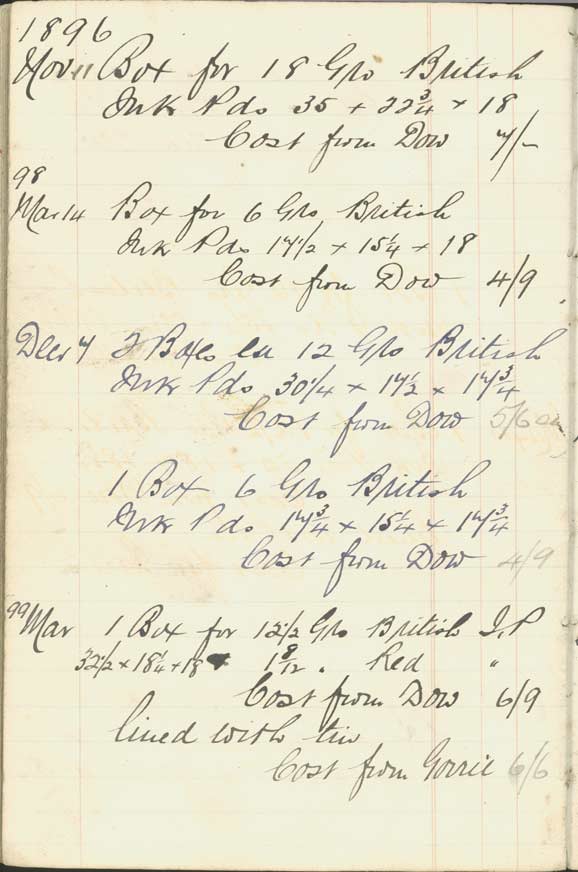 1896
Nov 11 Box for 18 Gro British
Ink Pds 35 + 22 3/4 × 18
Cost from Dow 7/-
98
Mar 14 Box for 6 Gro British
Ink Pds 17 1/2 + 15 1/4 + 18
Cost from Dow 4/9
Decr 7 2 Boxes ea 12 Gro British
Ink Pds 30 1/4 × 17 1/2 × 17 3/4
Cost from Dow 5/6 ea
1 Box 6 Gro British
Ink Pds 17 3/4 × 15 1/4 × 17 3/4
Cost from Dow 4/9
99 Mar 1 Box for 12 1/2 Gro British I.P
32 1/2 + 18 1/4 + 18 1 8/12 " Red "
Cost from Dow 6/9
lined with tin
Cost from Gorrie 6/6